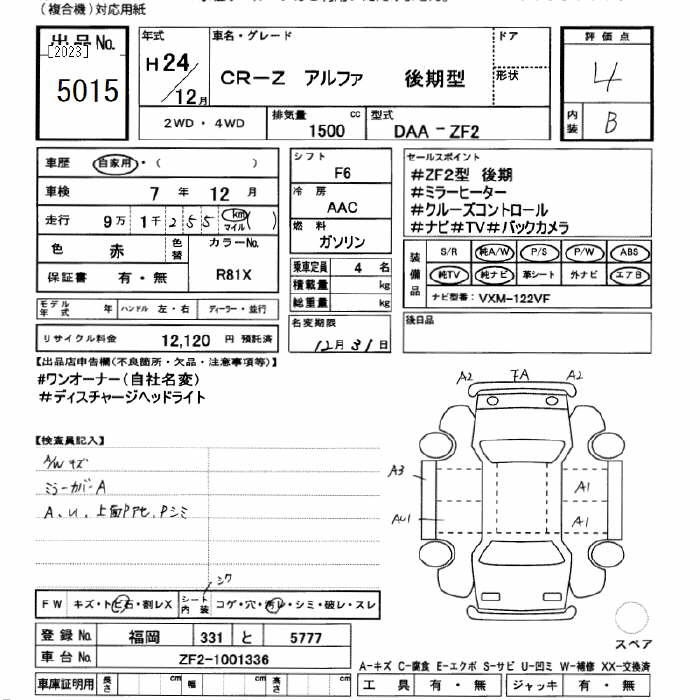 (複合機)対応用紙
出品No.
[2023]
5015
年式
H24/12月
車名・グレード
CR－Z アルファ 後期型
ドア
形状
評価点
4
内装
B
2WD・4WD
排気量
1500 cc
型式
DAA－ZF2
車歴 自家用・( )
車検 7年 12月
走行 9万 1千 255 (km マイル)
色 赤 色替
カラーNo.
R81X
保証書 有・無
モデル年式 年 ハンドル 左・右 ディーラー・並行
リサイクル料金 12,120 円 預託済
シフト
F6
冷房
AAC
燃料
ガソリン
乗車定員 4 名
積載量 kg
総重量 kg
名変期限
12月31日
セールスポイント
#ZF2型 後期
#ミラーヒーター
#クルーズコントロール
#ナビ#TV#バックカメラ
装備品
S/R 純A/W P/S P/W ABS
純TV 純ナビ 革シート 外ナビ エアB
ナビ型番: VXM-122VF
後日品
【出品店申告欄(不良箇所・欠品・注意事項等)】
#ワンオーナー(自社名変)
#ディスチャージヘッドライト
【検査員記入】
A/W キズ
ミラーカバーA
A、U、上面P
Pシミ
A2 A2
A3
A1
AU1 A1
シワ
FW キズ・トビ石・割レX
シート内装 コゲ・穴・汚レ・シミ・破レ・スレ
登録No. 福岡 331 と 5777
車台No. ZF2-1001336
車庫証明用 長さ cm 幅 cm 高さ cm
スペア
A－キズ C－腐食 E－エクボ S－サビ U－凹ミ W－補修 XX－交換済
工具 有・無 ジャッキ 有・無